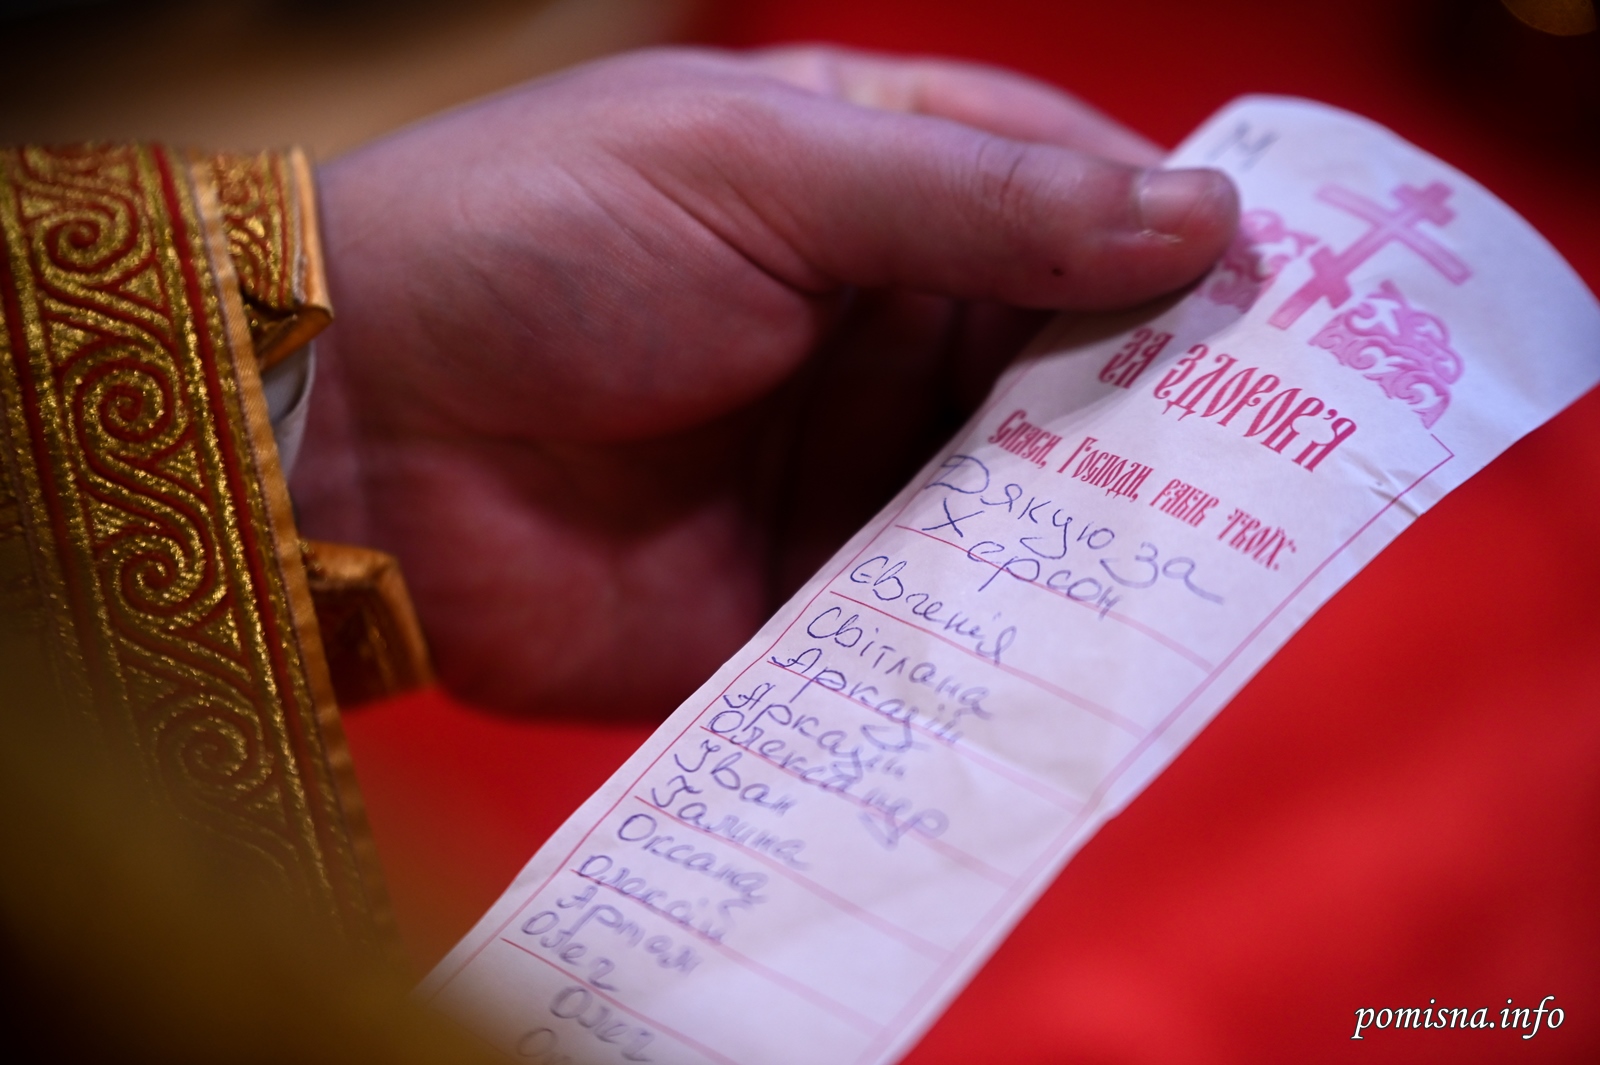 М
За здоров'я
Спаси, Господи, рабів твоїх:
Дякую за
Херсон
Євгенія
Світлана
Аркадій
Аркадій
Олександр
Іван
Галина
Оксана
Артем
Олег
Олег
pomisna.info